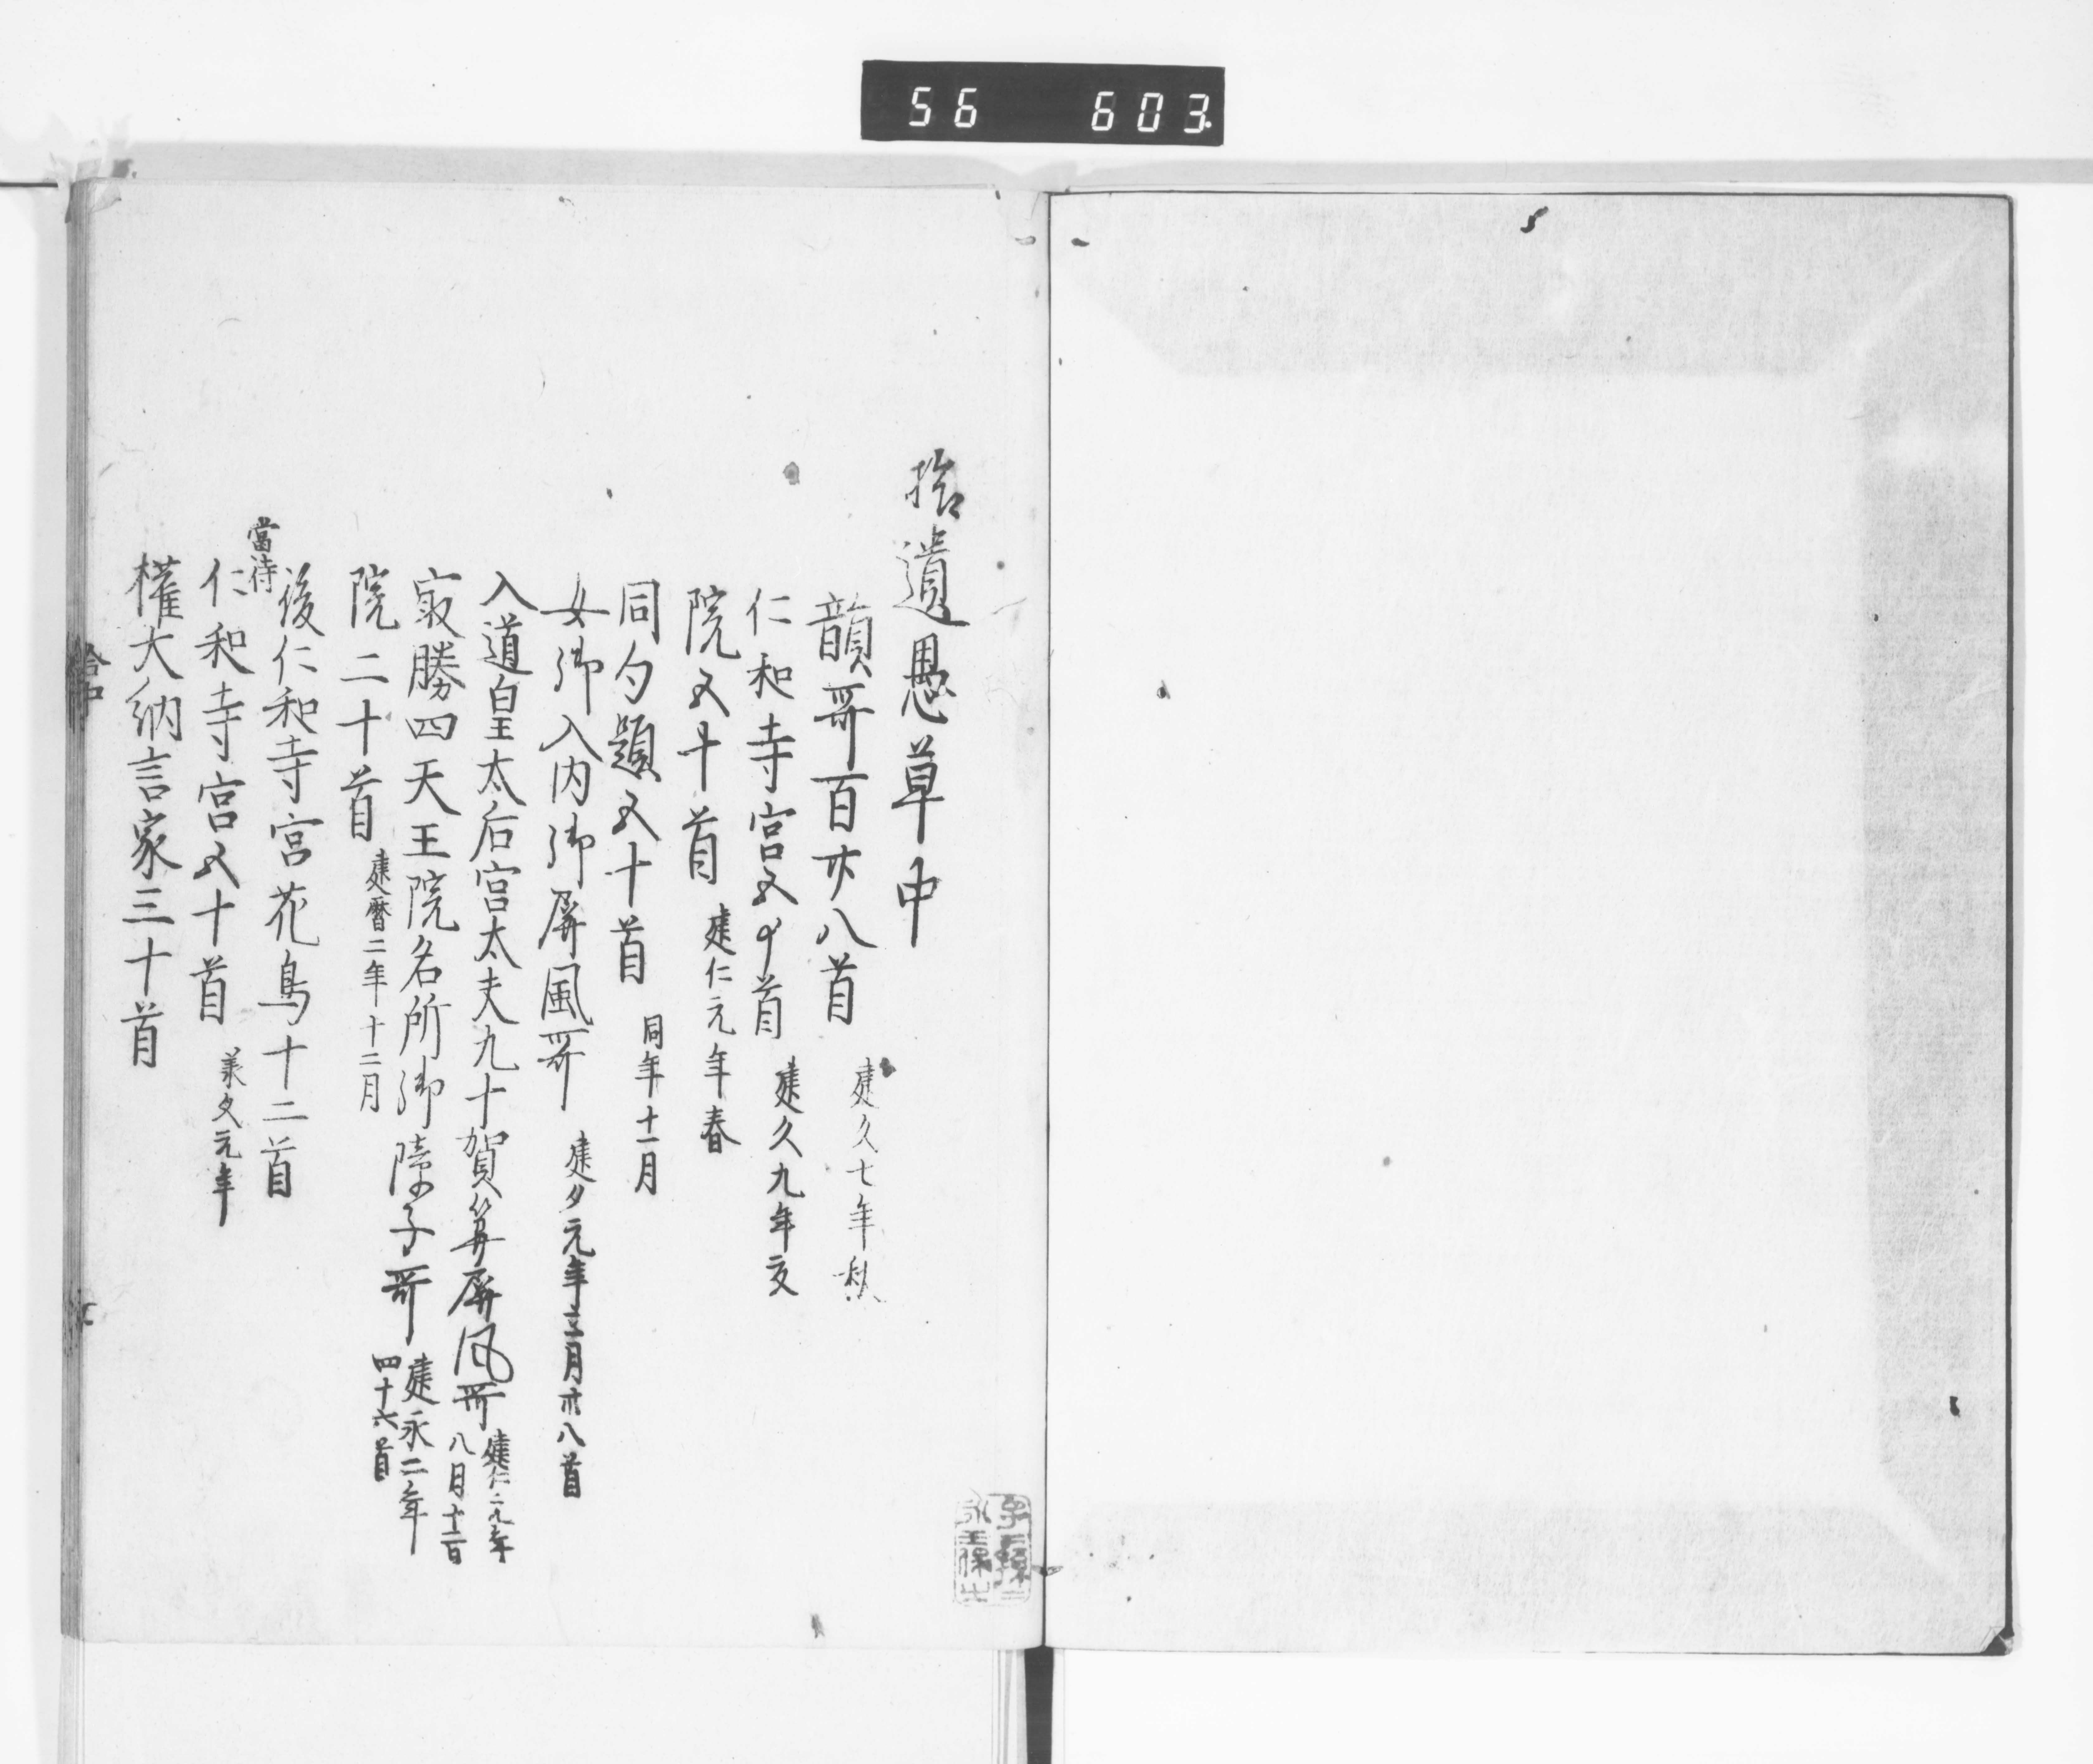 56 603
拾遺愚草中
韻哥百廿八首 建久七年秋
仁和寺宮五十首 建久九年夏
院五十首 建仁元年春
同勾題五十首 同年十一月
女御入内御屏風哥 文治元年十二月卅八首
入道皇太后宮太夫九十賀算屏风哥 建仁元年八月十五首
冣勝四天王院名所御障子哥 建永二年四十六首
院二十首 建暦二年十二月
後仁和寺宮花鳥十二首
當時
仁和寺宮五十首 承久元年
權大納言家三十首